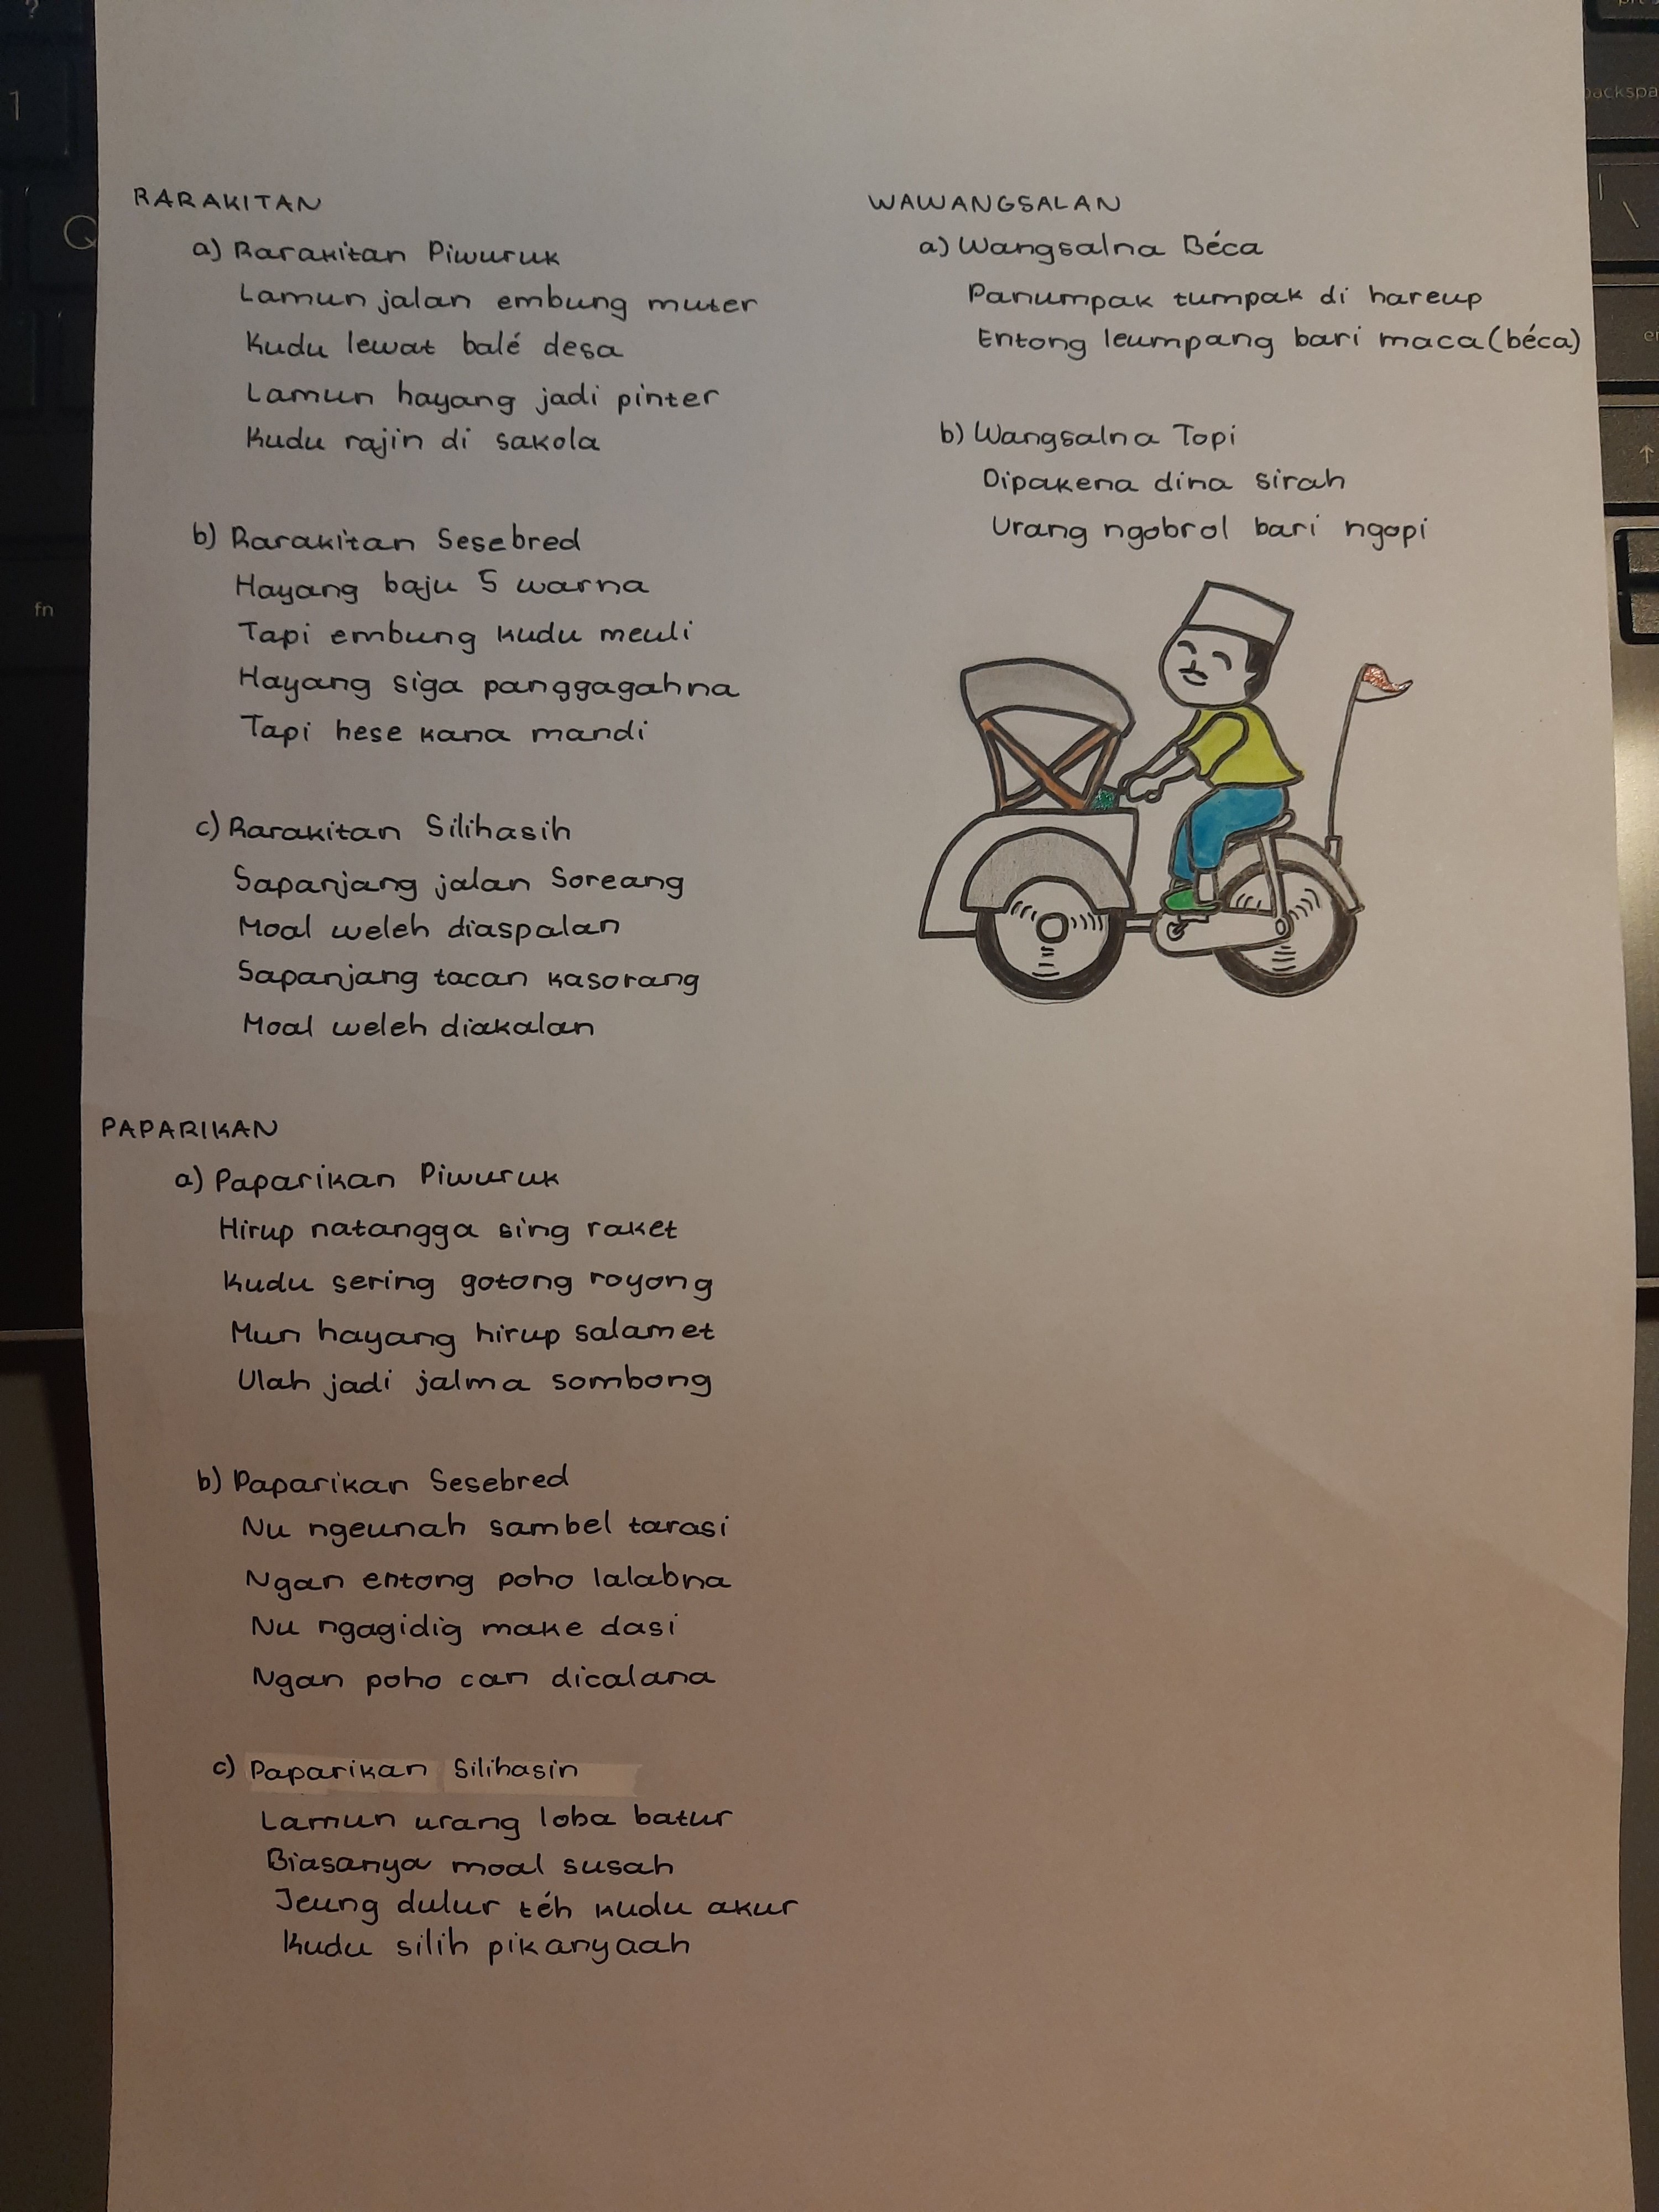 RARAKITAN
a) Rarakitan Piwuruk
Lamun jalan embung muter
Kudu lewat balé desa
Lamun hayang jadi pinter
Kudu rajin di sakola
b) Rarakitan Sesebred
Hayang baju 5 warna
Tapi embung kudu meuli
Hayang siga panggagahna
Tapi hese kana mandi
c) Rarakitan Silihasih
Sapanjang jalan Soreang
Moal weleh diaspalan
Sapanjang tacan kasorang
Moal weleh diakalan
PAPARIKAN
a) Paparikan Piwuruk
Hirup natangga sing raket
Kudu sering gotong royong
Mun hayang hirup salamet
Ulah jadi jalma sombong
b) Paparikan Sesebred
Nu ngeunah sambel tarasi
Ngan entong poho lalabna
Nu ngagidig make dasi
Ngan poho can dicalana
c) Paparikan Silihasin
Lamun urang loba batur
Biasanya moal susah
Jeung dulur téh kudu akur
Kudu silih pikanyaah
WAWANGSALAN
a) Wangsalna Béca
Panumpak tumpak di hareup
Entong leumpang bari maca (béca)
b) Wangsalna Topi
Dipakena dina sirah
Urang ngobrol bari ngopi
?
1
Q
fn
↑
\